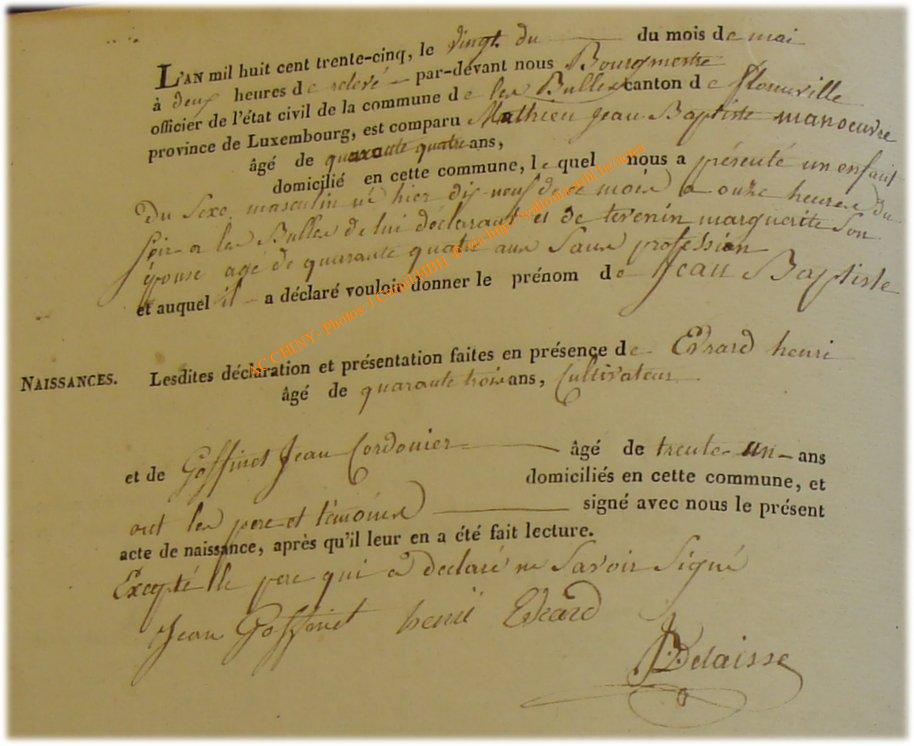 L'AN mil huit cent trente-cinq, le vingt du — du mois de mai
à deux heures de relevé — par-devant nous Bourgmestre
officier de l'état civil de la commune de les Bulles canton de florenville
province de Luxembourg, est comparu Mathieu Jean Baptiste manoeuvre
âgé de quarante quatre ans,
domicilié en cette commune, lequel nous a présenté un enfant
du Sexe masculin né hier dix neuf de ce mois a onze heures du
Soir a les Bulles de lui déclarant et de terenin marguerite Son
épouse agé de quarante quatre ans Sans profession
et auquel il — a déclaré vouloir donner le prénom de Jean Baptiste
NAISSANCES. Lesdites déclaration et présentation faites en présence de Evrard henri
âgé de quarante trois ans, Cultivateur
et de Goffinet Jean Cordonier — âgé de trente-un — ans
domiciliés en cette commune, et
ont les pere et témoins — signé avec nous le présent
acte de naissance, après qu'il leur en a été fait lecture.
Excepté le pere qui a declaré ne Savoir Signé
Jean Goffinet henri Evrard
Delaisse
AC CHINY - Photos